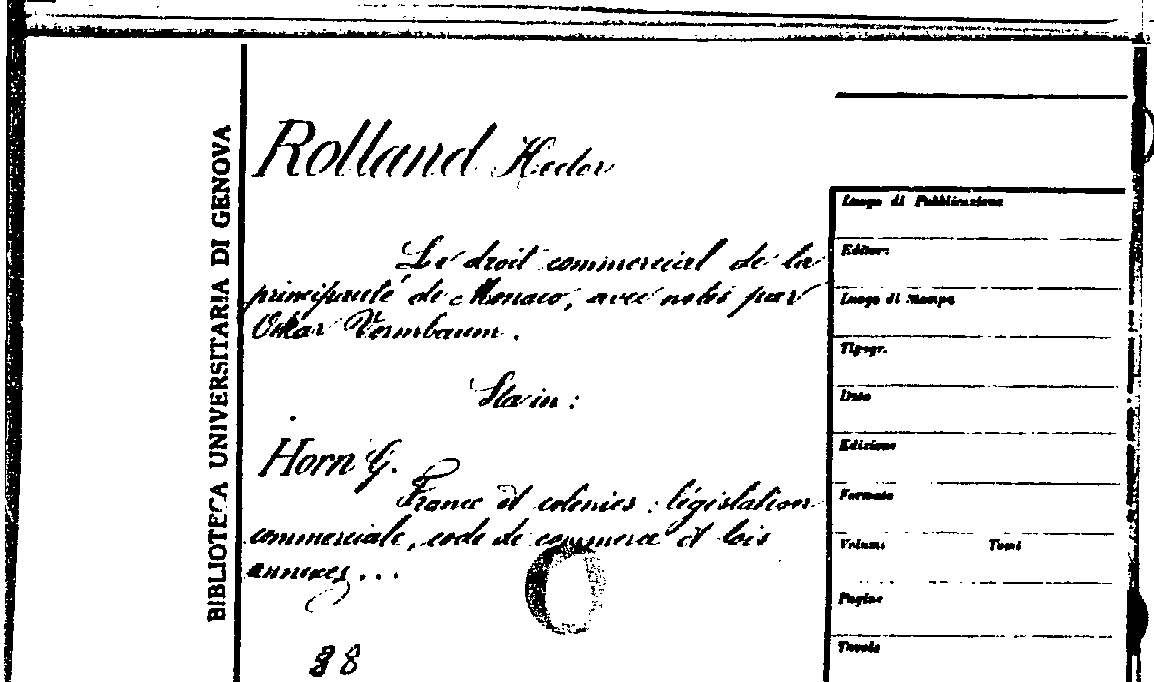 BIBLIOTECA UNIVERSITARIA DI GENOVA
Rolland Hector
Le droit commercial de la
principauté de Monaco, avec notes par
Oskar
Sta in:
Horn G.
France et colonies : législation
commerciale, code de commerce et lois
annexes...
88
Luogo di Pubblicazione
Editore
Luogo di Stampa
Tipogr.
Data
Edizione
Formato
Volumi Tomi
Pagine
Tavole